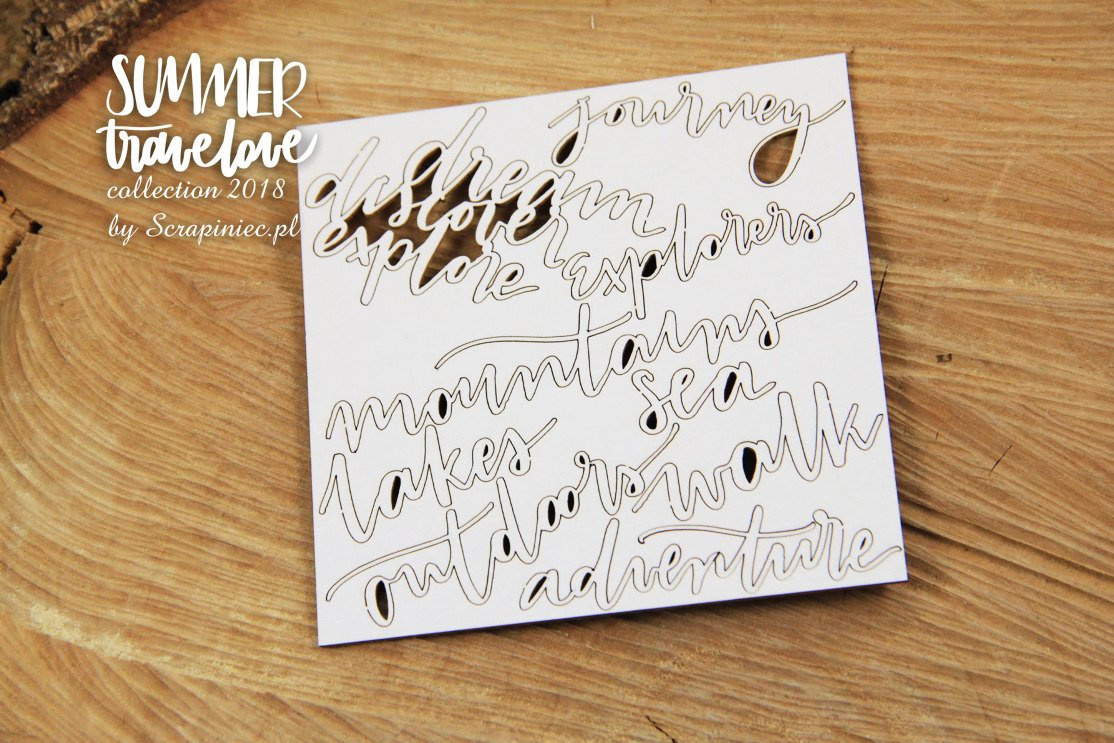 SUMMER
travelove
collection 2018
by Scrapiniec.pl
journey
dream
discover
explore
explorers
mountains
sea
lakes
walk
outdoors
adventure